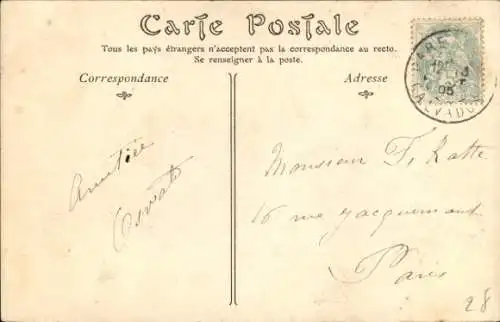 Carte Postale
Tous les pays étrangers n'acceptent pas la correspondance au recto.
Se renseigner à la poste.
Correspondance
Adresse
CALVADOS
05
Amitiés
Monsieur F. Ratte
16 rue Jacquemont
Paris
28